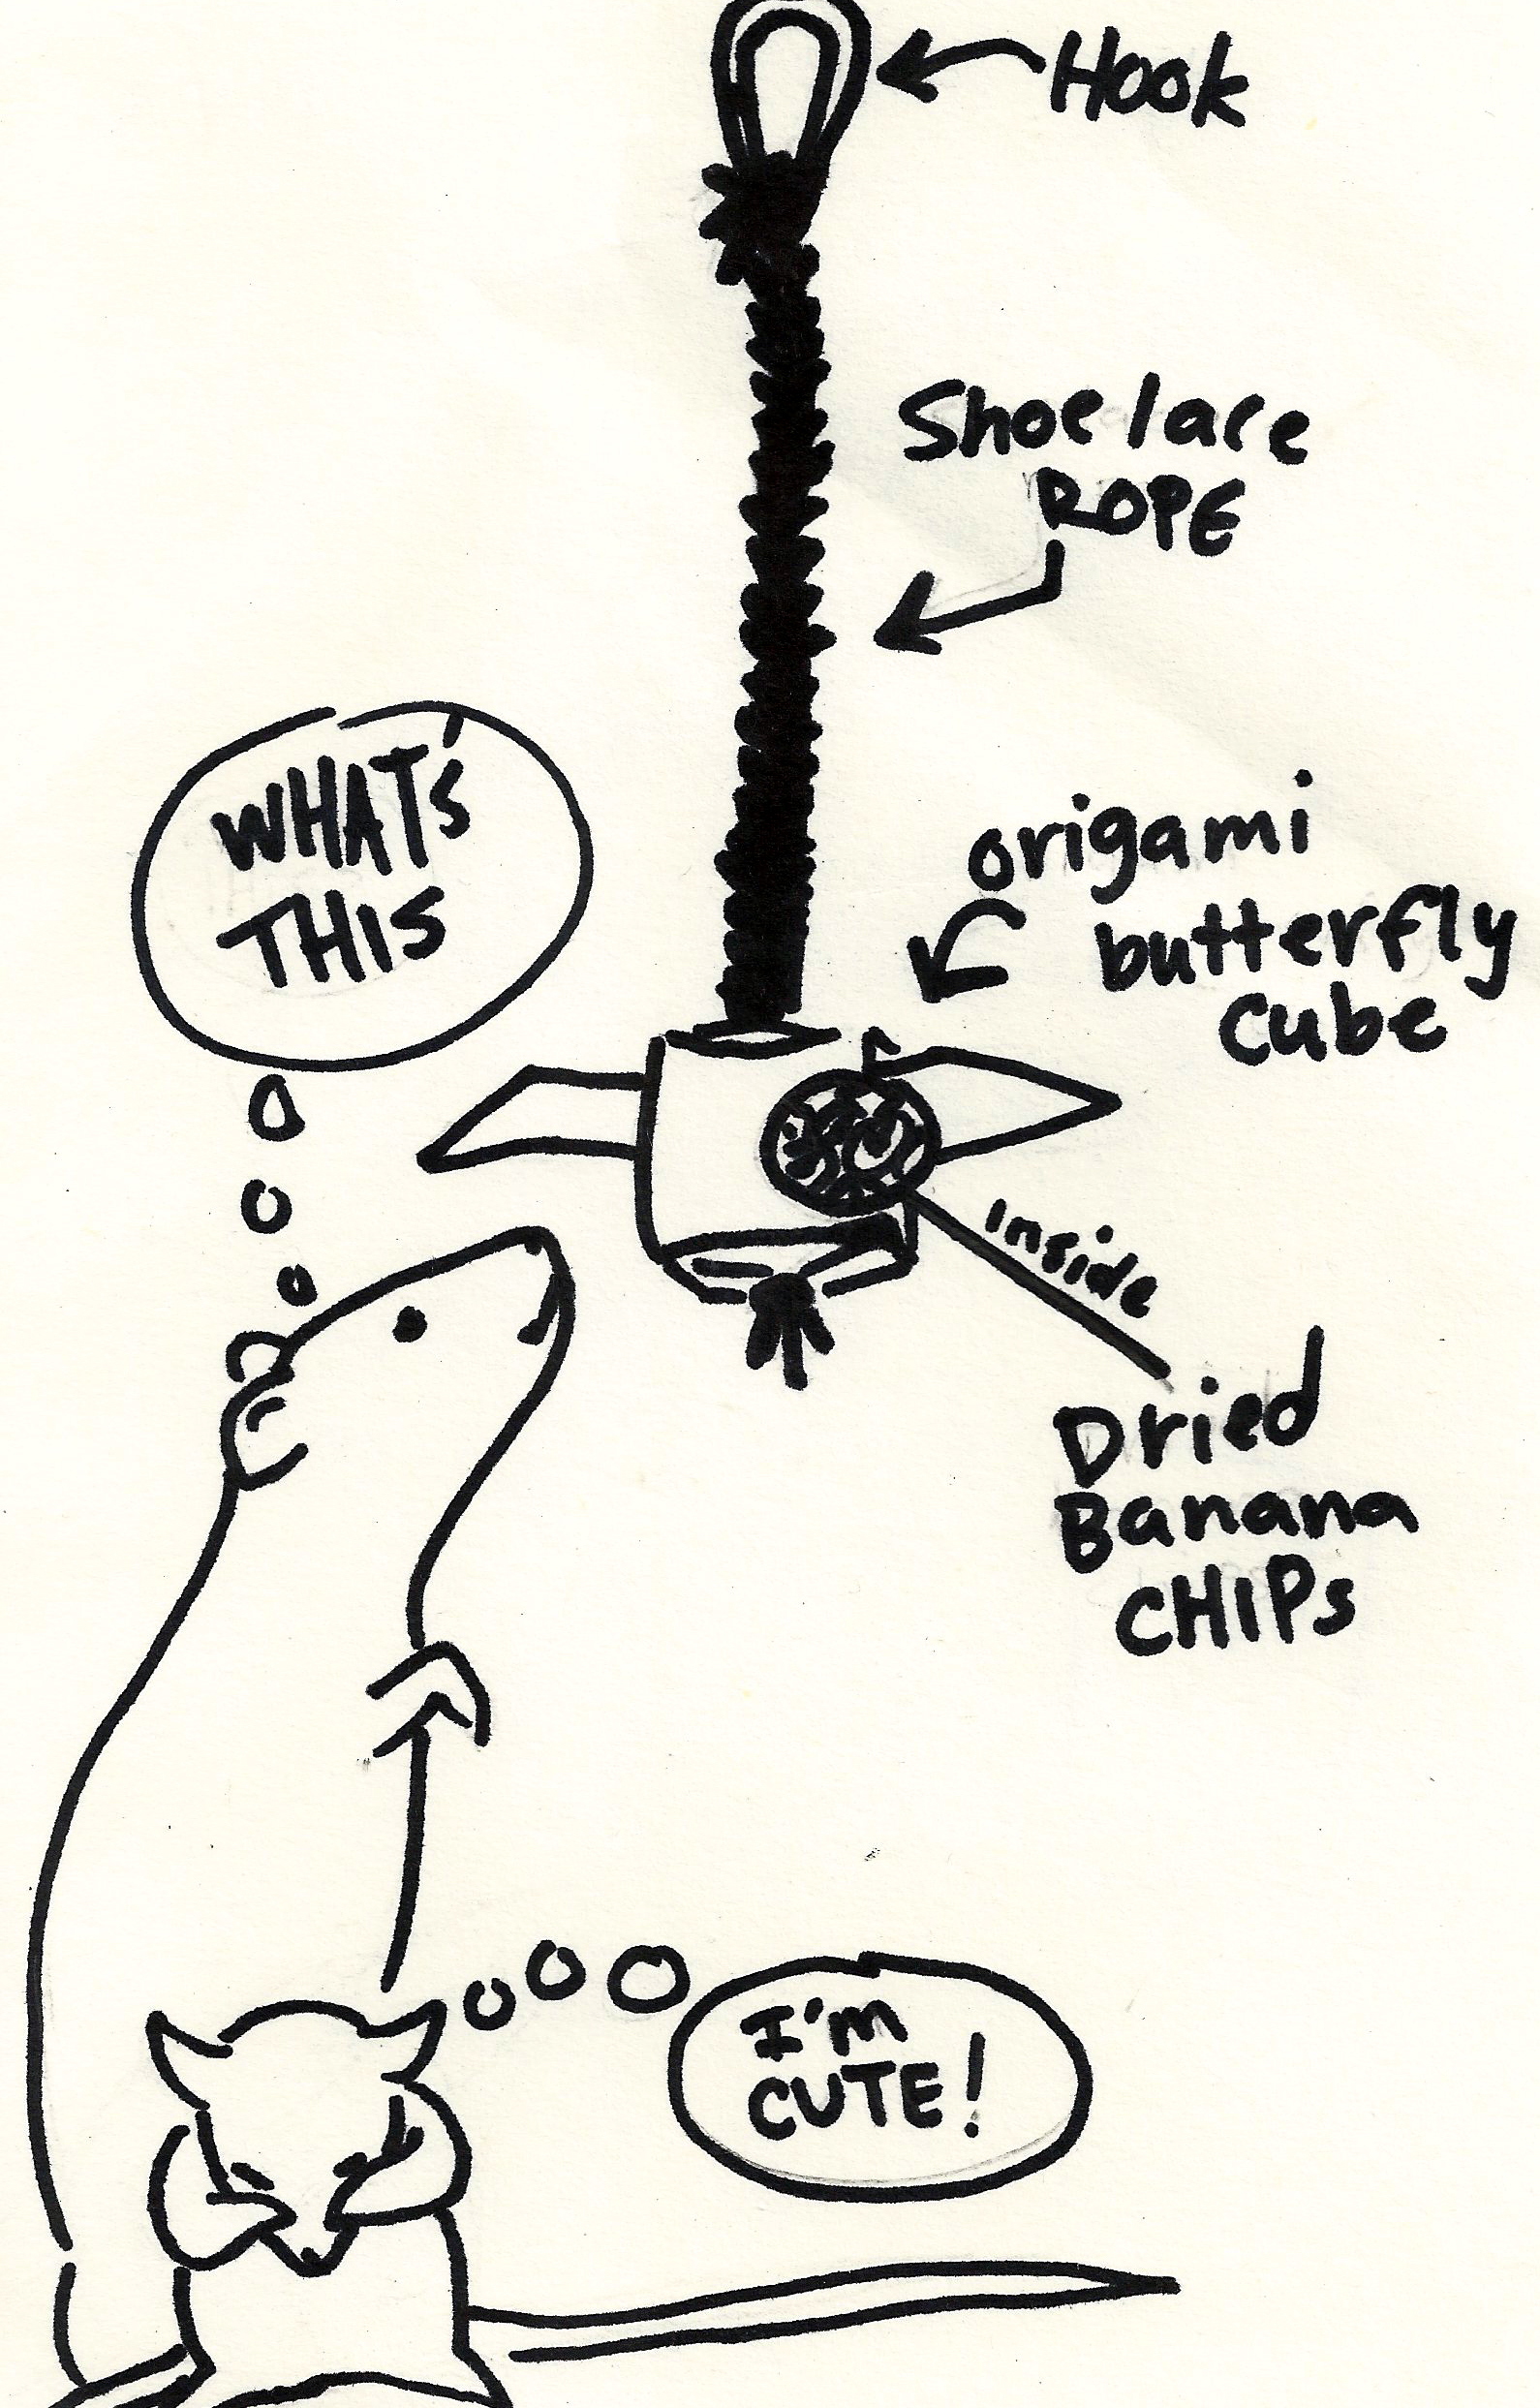 Hook
Shoelace
ROPE
WHAT'S
THIS
origami
butterfly
cube
Inside
Dried
Banana
CHIPS
I'm
CUTE!